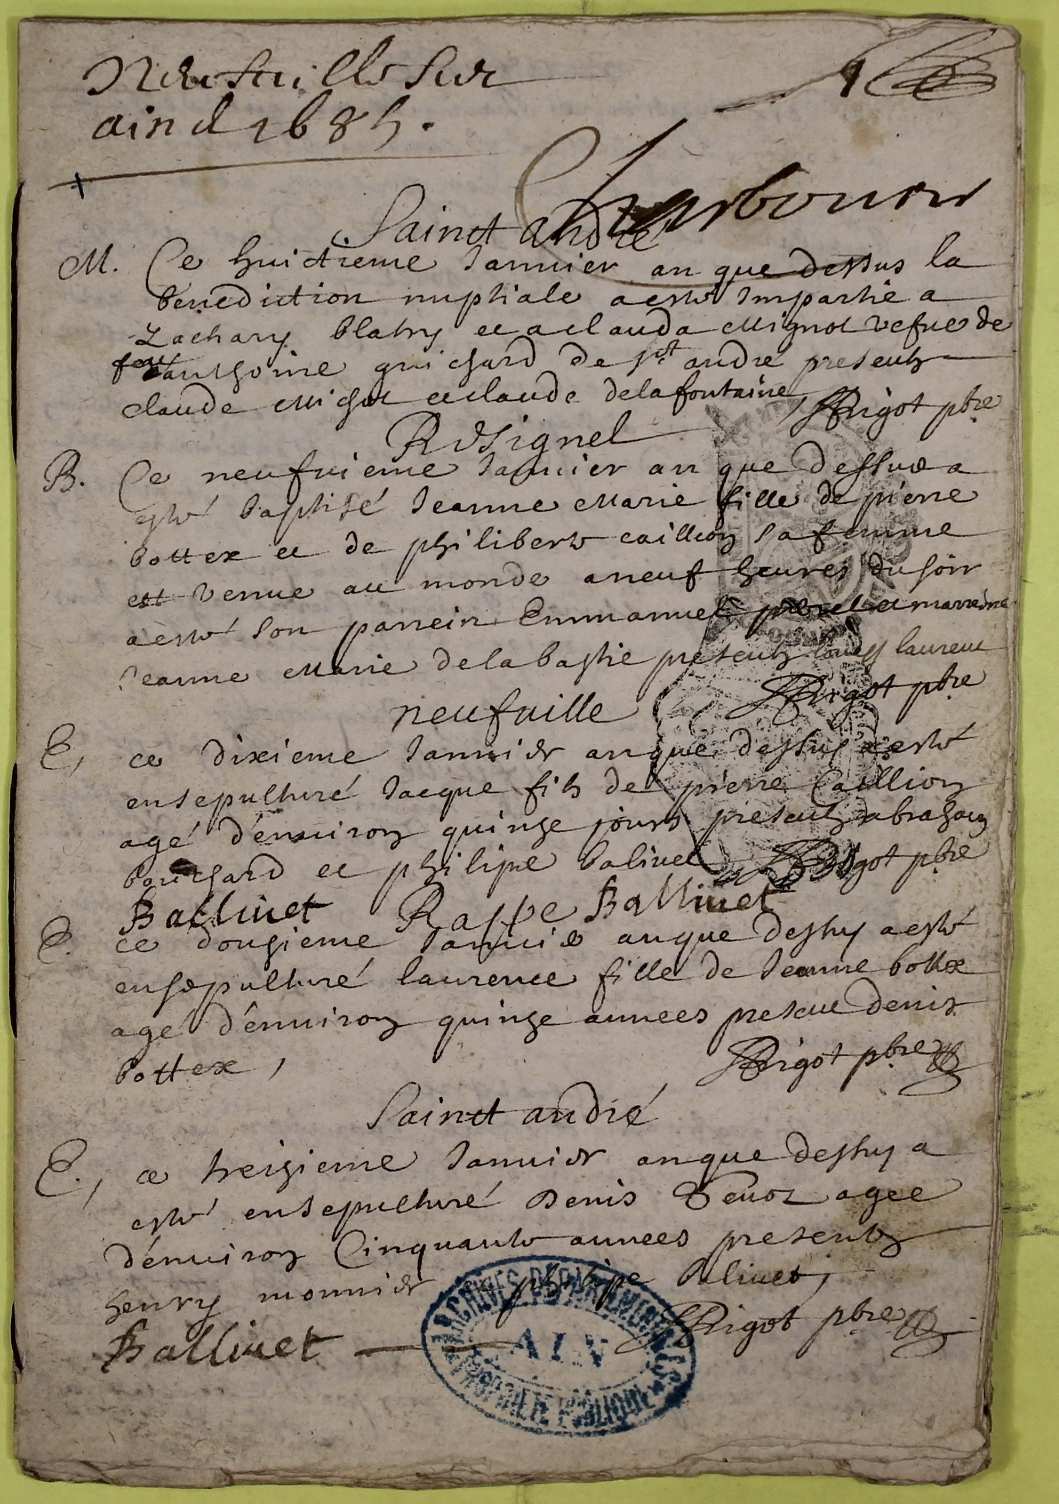 Neufuille sur
ain d 1685.
1
Charbonier
Sainct andré
M. Ce huictieme Januier an que dessus la
benediction nuptiale a esté Impartie a
Zachary blatry et a clauda Mignot vefue de
feu anthoine guichard de st andré presentz
claude Michol et claude delafontaine JRigot pbre
Rosignel
B. Ce neufuieme Januier an que dessus a
esté baptisé Jeanne Marie fille de pierre
bottex et de philiberte caillion sa femme
est venue au monde a neuf heures du soir
a esté son parrein Emmanuel et marreine
Jeanne Marie delabastie presentz laurent
JRigot pbre
neufuille
E, ce dixieme Januier an que dessus a esté
ensepulturé Jacque fils de pierre Caillion
agé d'enuiron quinze jours presentz abraham
bouchard et philipe baliuet JRigot pbre
Balliuet Rappe Balliuet
E. ce douzieme Januier an que dessus a esté
ensepulturé laurence fille de Jeanne bottex
agé d'enuiron quinze annees present denis
bottex, JRigot pbre
Sainct andré
E., ce treizieme Januier an que dessus a
esté ensepulturé Denis Teuoz agee
d'enuiron Cinquante annees presentz
henry monnier philipe baliuet,
JRigot pbre
Balliuet
ARCHIVES DÉPARTEMENTALES
AIN
PROPRIÉTÉ PUBLIQUE